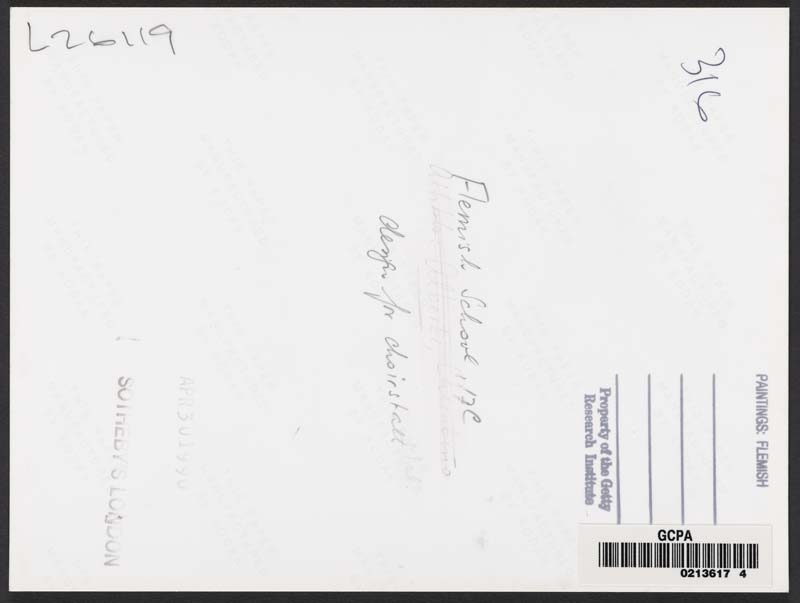 L26119
316
Flemish School, 17C
design for choirstall
APR 30 1990
SOTHEBY'S LONDON
PAINTINGS: FLEMISH
Property of the Getty
Research Institute
GCPA
0213617 4